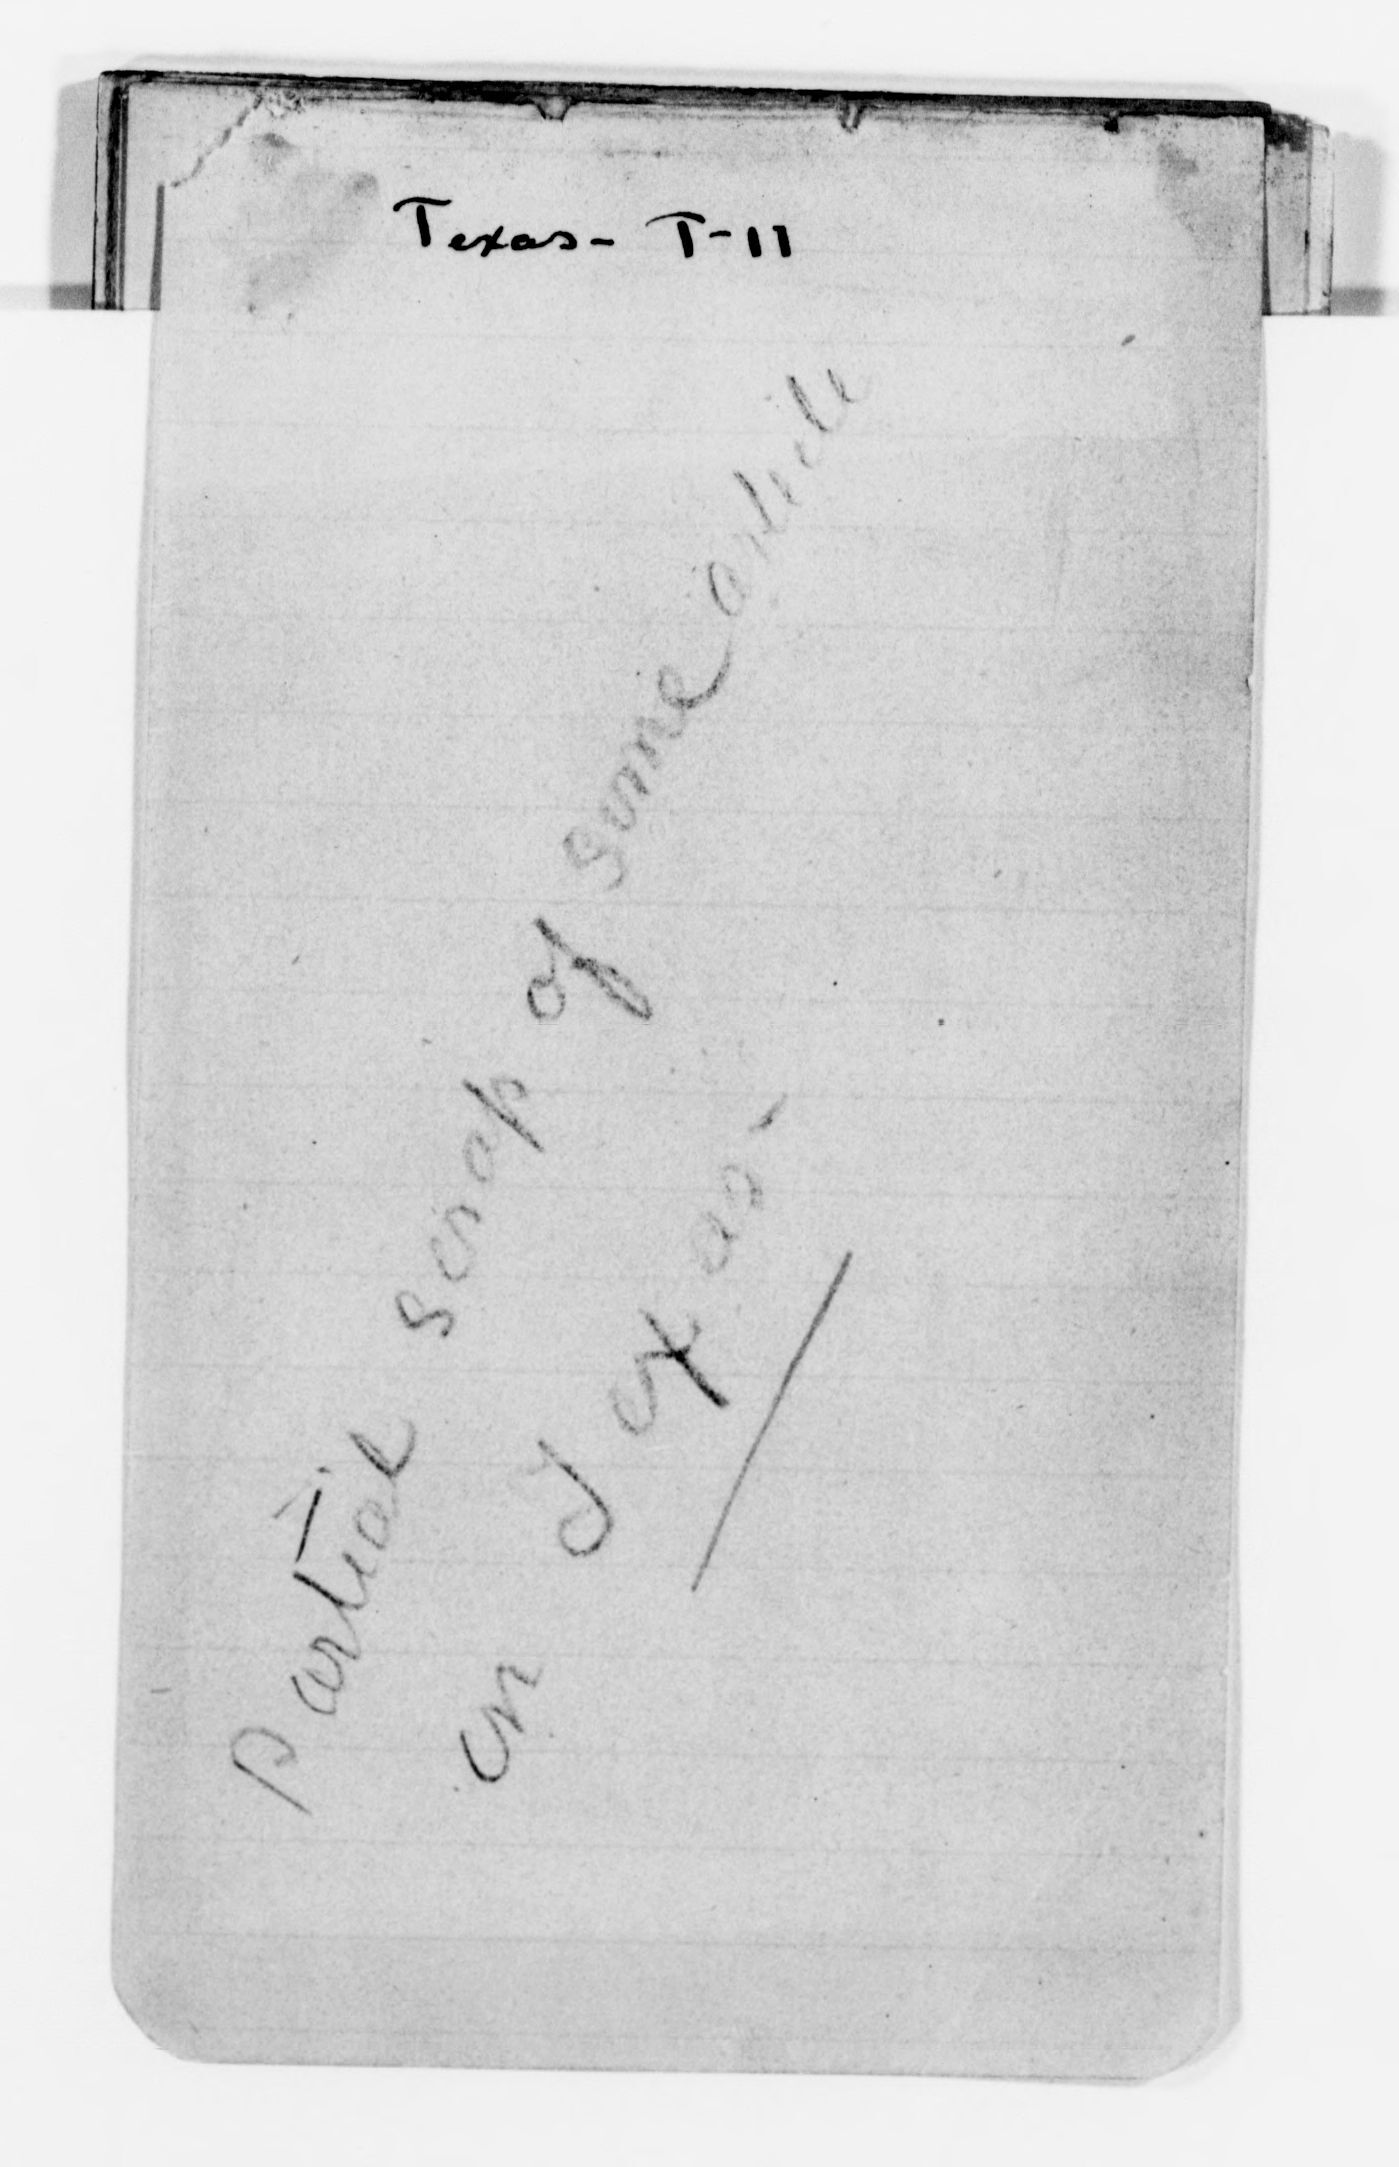 Texas - T-11
Partial scrap of some article
on Texas -